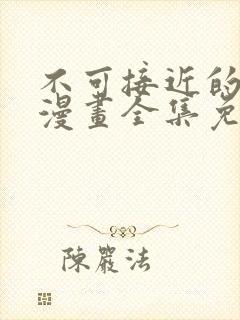 不可接近的
漫畫全集免
陳嚴法